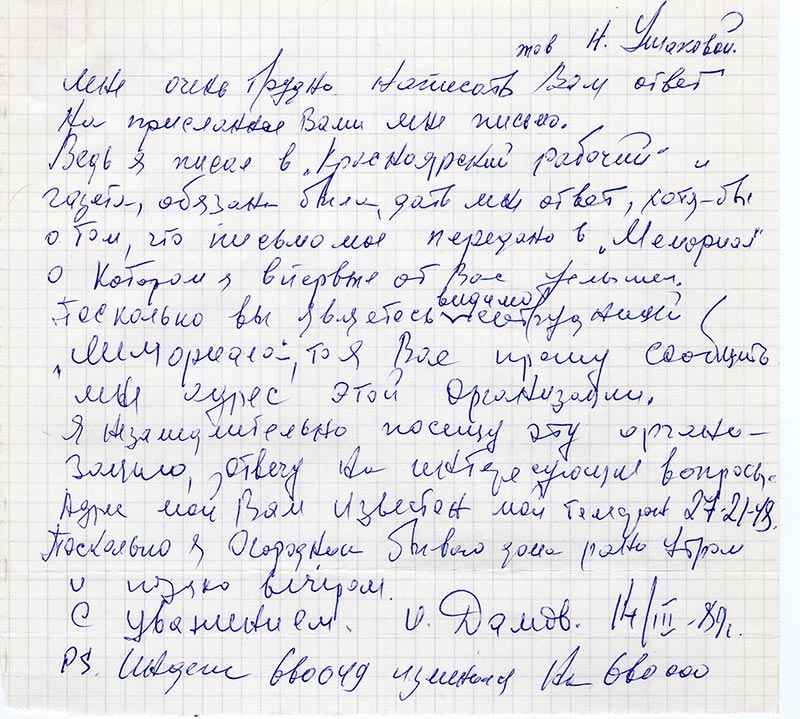 тов Н. Ушаковой.
мне очень трудно написать Вам ответ
на присланное Вами мне письмо.
Ведь я писал в „Красноярский рабочий" и
газета, обязана была, дать мне ответ, хотя-бы
о том, что письмо мое передано в „Мемориал"
о котором я впервые от Вас услышал.
видимо
Поскольку вы являетесь сотрудницей
„Мемориала", то я Вас прошу сообщить
мне адрес этой организации.
Я незамедлительно посещу эту органи-
зацию, отвечу на интересующие вопросы.
Адрес мой Вам известен мой телефон 27-21-48.
Поскольку я Огородник бываю дома рано утром
и поздно вечером.
С уважением. И. Дамов. 14/III-89г.
PS. Индекс 660049 изменился на 660000